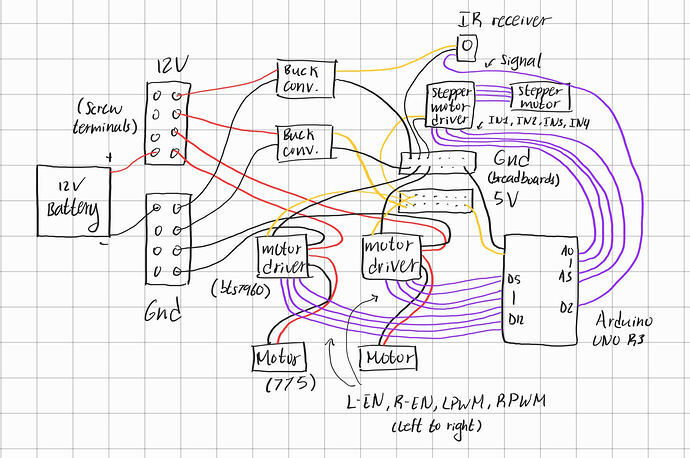 IR receiver
12V
Buck
conv.
Signal
Stepper
motor
driver
Stepper
motor
(Screw
terminals)
IN1, IN2, IN3, IN4
Buck
conv.
Gnd
(breadboards)
5V
12V
Battery
+
-
motor
driver
motor
driver
(bts7960)
Gnd
D5
|
D12
A0
|
A3
D2
Arduino
UNO R3
Motor
(775)
Motor
L-EN, R-EN, LPWM, RPWM
(left to right)